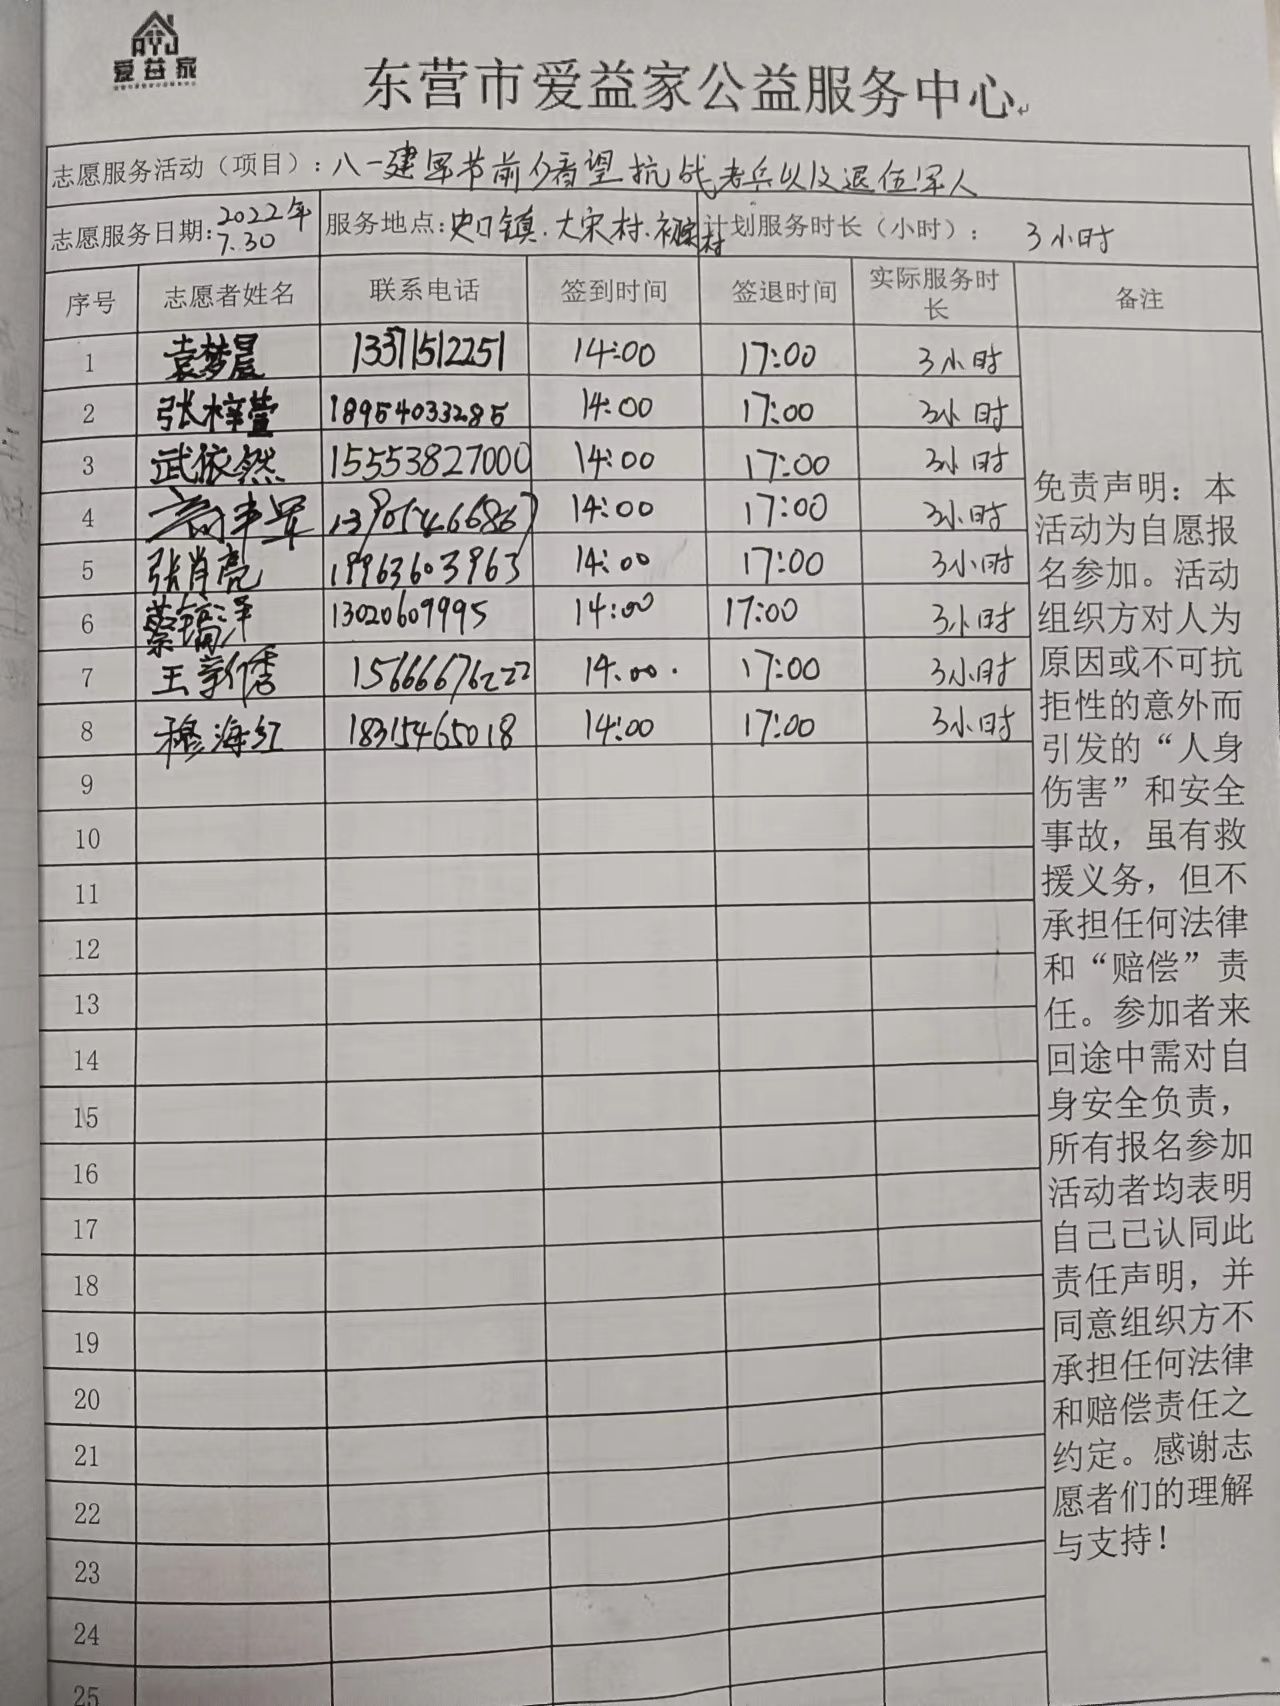 爱益家
东营市爱益家公益服务中心
志愿服务活动（项目）：八一建军节前夕看望抗战老兵以及退伍军人
志愿服务日期：2022年7.30 服务地点：史口镇.大宋村. 计划服务时长（小时）： 3小时
序号 志愿者姓名 联系电话 签到时间 签退时间 实际服务时长 备注
1 袁梦晨 13371512251 14:00 17:00 3小时
2 张梓萱 18954033285 14:00 17:00 3小时
3 武依然 15553827000 14:00 17:00 3小时
4 14:00 17:00 3小时
5 张肖亮 19963603963 14:00 17:00 3小时
6 蔡镐泽 13020609995 14:00 17:00 3小时
7 王 15666676222 14:00. 17:00 3小时
8 穆海红 18315465018 14:00 17:00 3小时
9
10
11
12
13
14
15
16
17
18
19
20
21
22
23
24
25
免责声明：本
活动为自愿报
名参加。活动
组织方对人为
原因或不可抗
拒性的意外而
引发的“人身
伤害”和安全
事故，虽有救
援义务，但不
承担任何法律
和“赔偿”责
任。参加者来
回途中需对自
身安全负责，
所有报名参加
活动者均表明
自己已认同此
责任声明，并
同意组织方不
承担任何法律
和赔偿责任之
约定。感谢志
愿者们的理解
与支持！